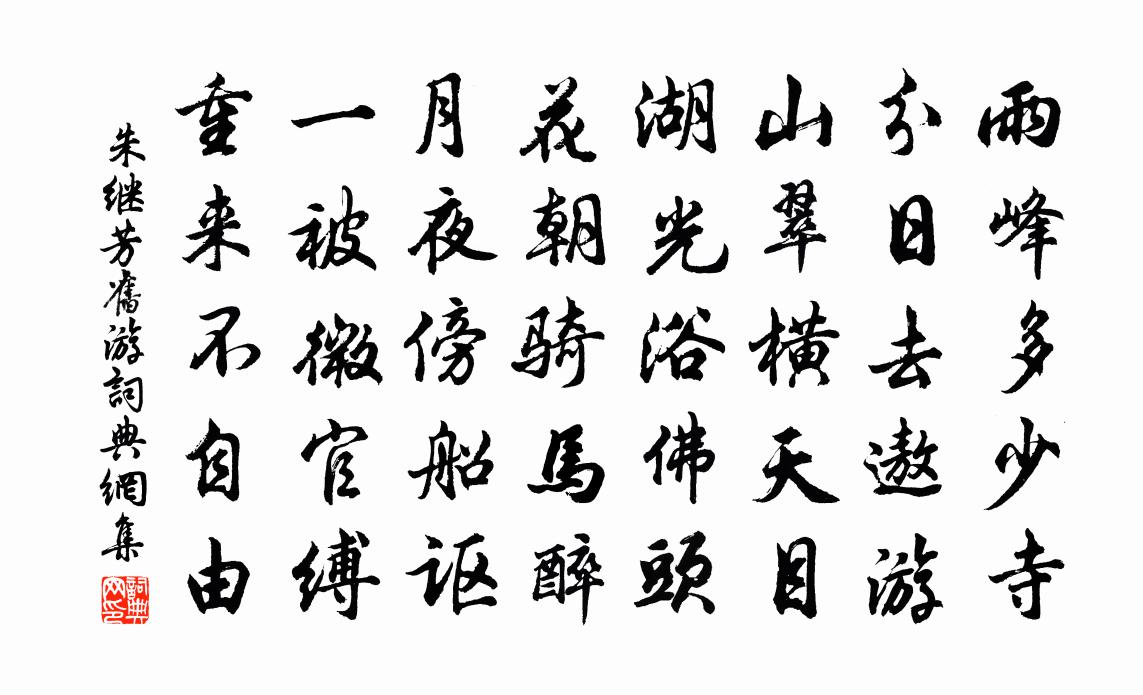 兩峰多少寺
分日去遨游
山翠横天目
湖光浴佛頭
花朝骑馬醉
月夜傍船讴
一被微官缚
重来不自由
朱继芳舊游詞典網集
詞典網印